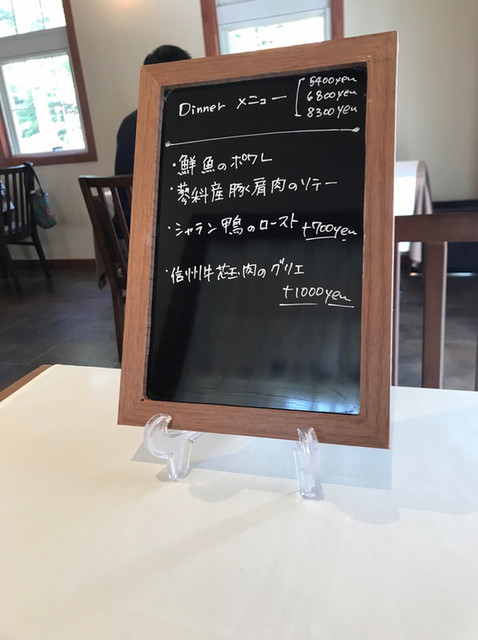 Dinner メニュー
5400yen
6800yen
8300yen
・鮮魚のポワレ
・蓼科産豚肩肉のソテー
・シャラン鴨のロースト +700yen
・信州牛芯玉肉のグリエ
+1000yen